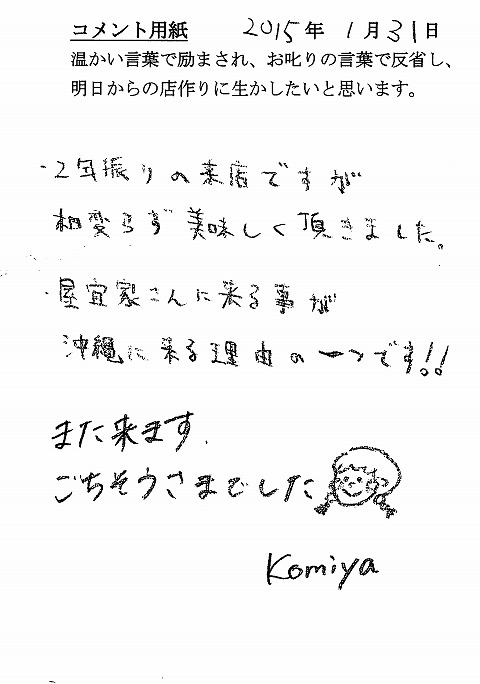 コメント用紙 2015年 1月31日
温かい言葉で励まされ、お叱りの言葉で反省し、
明日からの店作りに生かしたいと思います。
・2年振りの来店ですが
相変らず美味しく頂きました。
・屋宜家さんに来る事が
沖縄に来る理由の一つです!!
また来ます.
ごちそうさまでした
Komiya